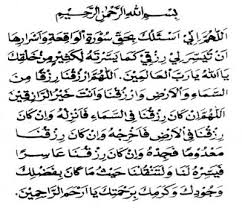 بِسْمِ اللهِ الرَّحْمٰنِ الرَّحِيْمِ
اَللّٰهُمَّ اِنِّيْ اَسْئَلُكَ بِحَقِّ سُوْرَةِ الْوَاقِعَةِ وَاَسْرَارِهَا
اَنْ تُيَسِّرَ لِيْ رِزْقِيْ كَمَا يَسَّرْتَهُ لِكَثِيْرٍ مِنْ خَلْقِكَ
يَا اَللهُ يَارَبَّ الْعَالَمِيْنَ. اَللّٰهُمَّ ارْزُقْنَا رِزْقًا مِنَ
السَّمَاءِ وَالْاَرْضِ وَارْزُقْنَا وَاَنْتَ خَيْرُ الرَّازِقِيْنَ
اَللّٰهُمَّ اِنْ كَانَ رِزْقُنَا فِي السَّمَاءِ فَاَنْزِلْهُ وَاِنْ كَانَ
رِزْقُنَا فِي الْاَرْضِ فَاَخْرِجْهُ وَاِنْ كَانَ رِزْقُنَا
مَعْدُوْمًا فَجِدْهُ وَاِنْ كَانَ رِزْقُنَا عَاسِرًا
فَيَسِّرْهُ لَنَا وَلِتَنْقُلْنَا حَيْثُ مَا كَانَ بِفَضْلِكَ
وَجُوْدِكَ وَكَرَمِكَ بِرَحْمَتِكَ يَا اَرْحَمَ الرَّاحِمِيْنَ.